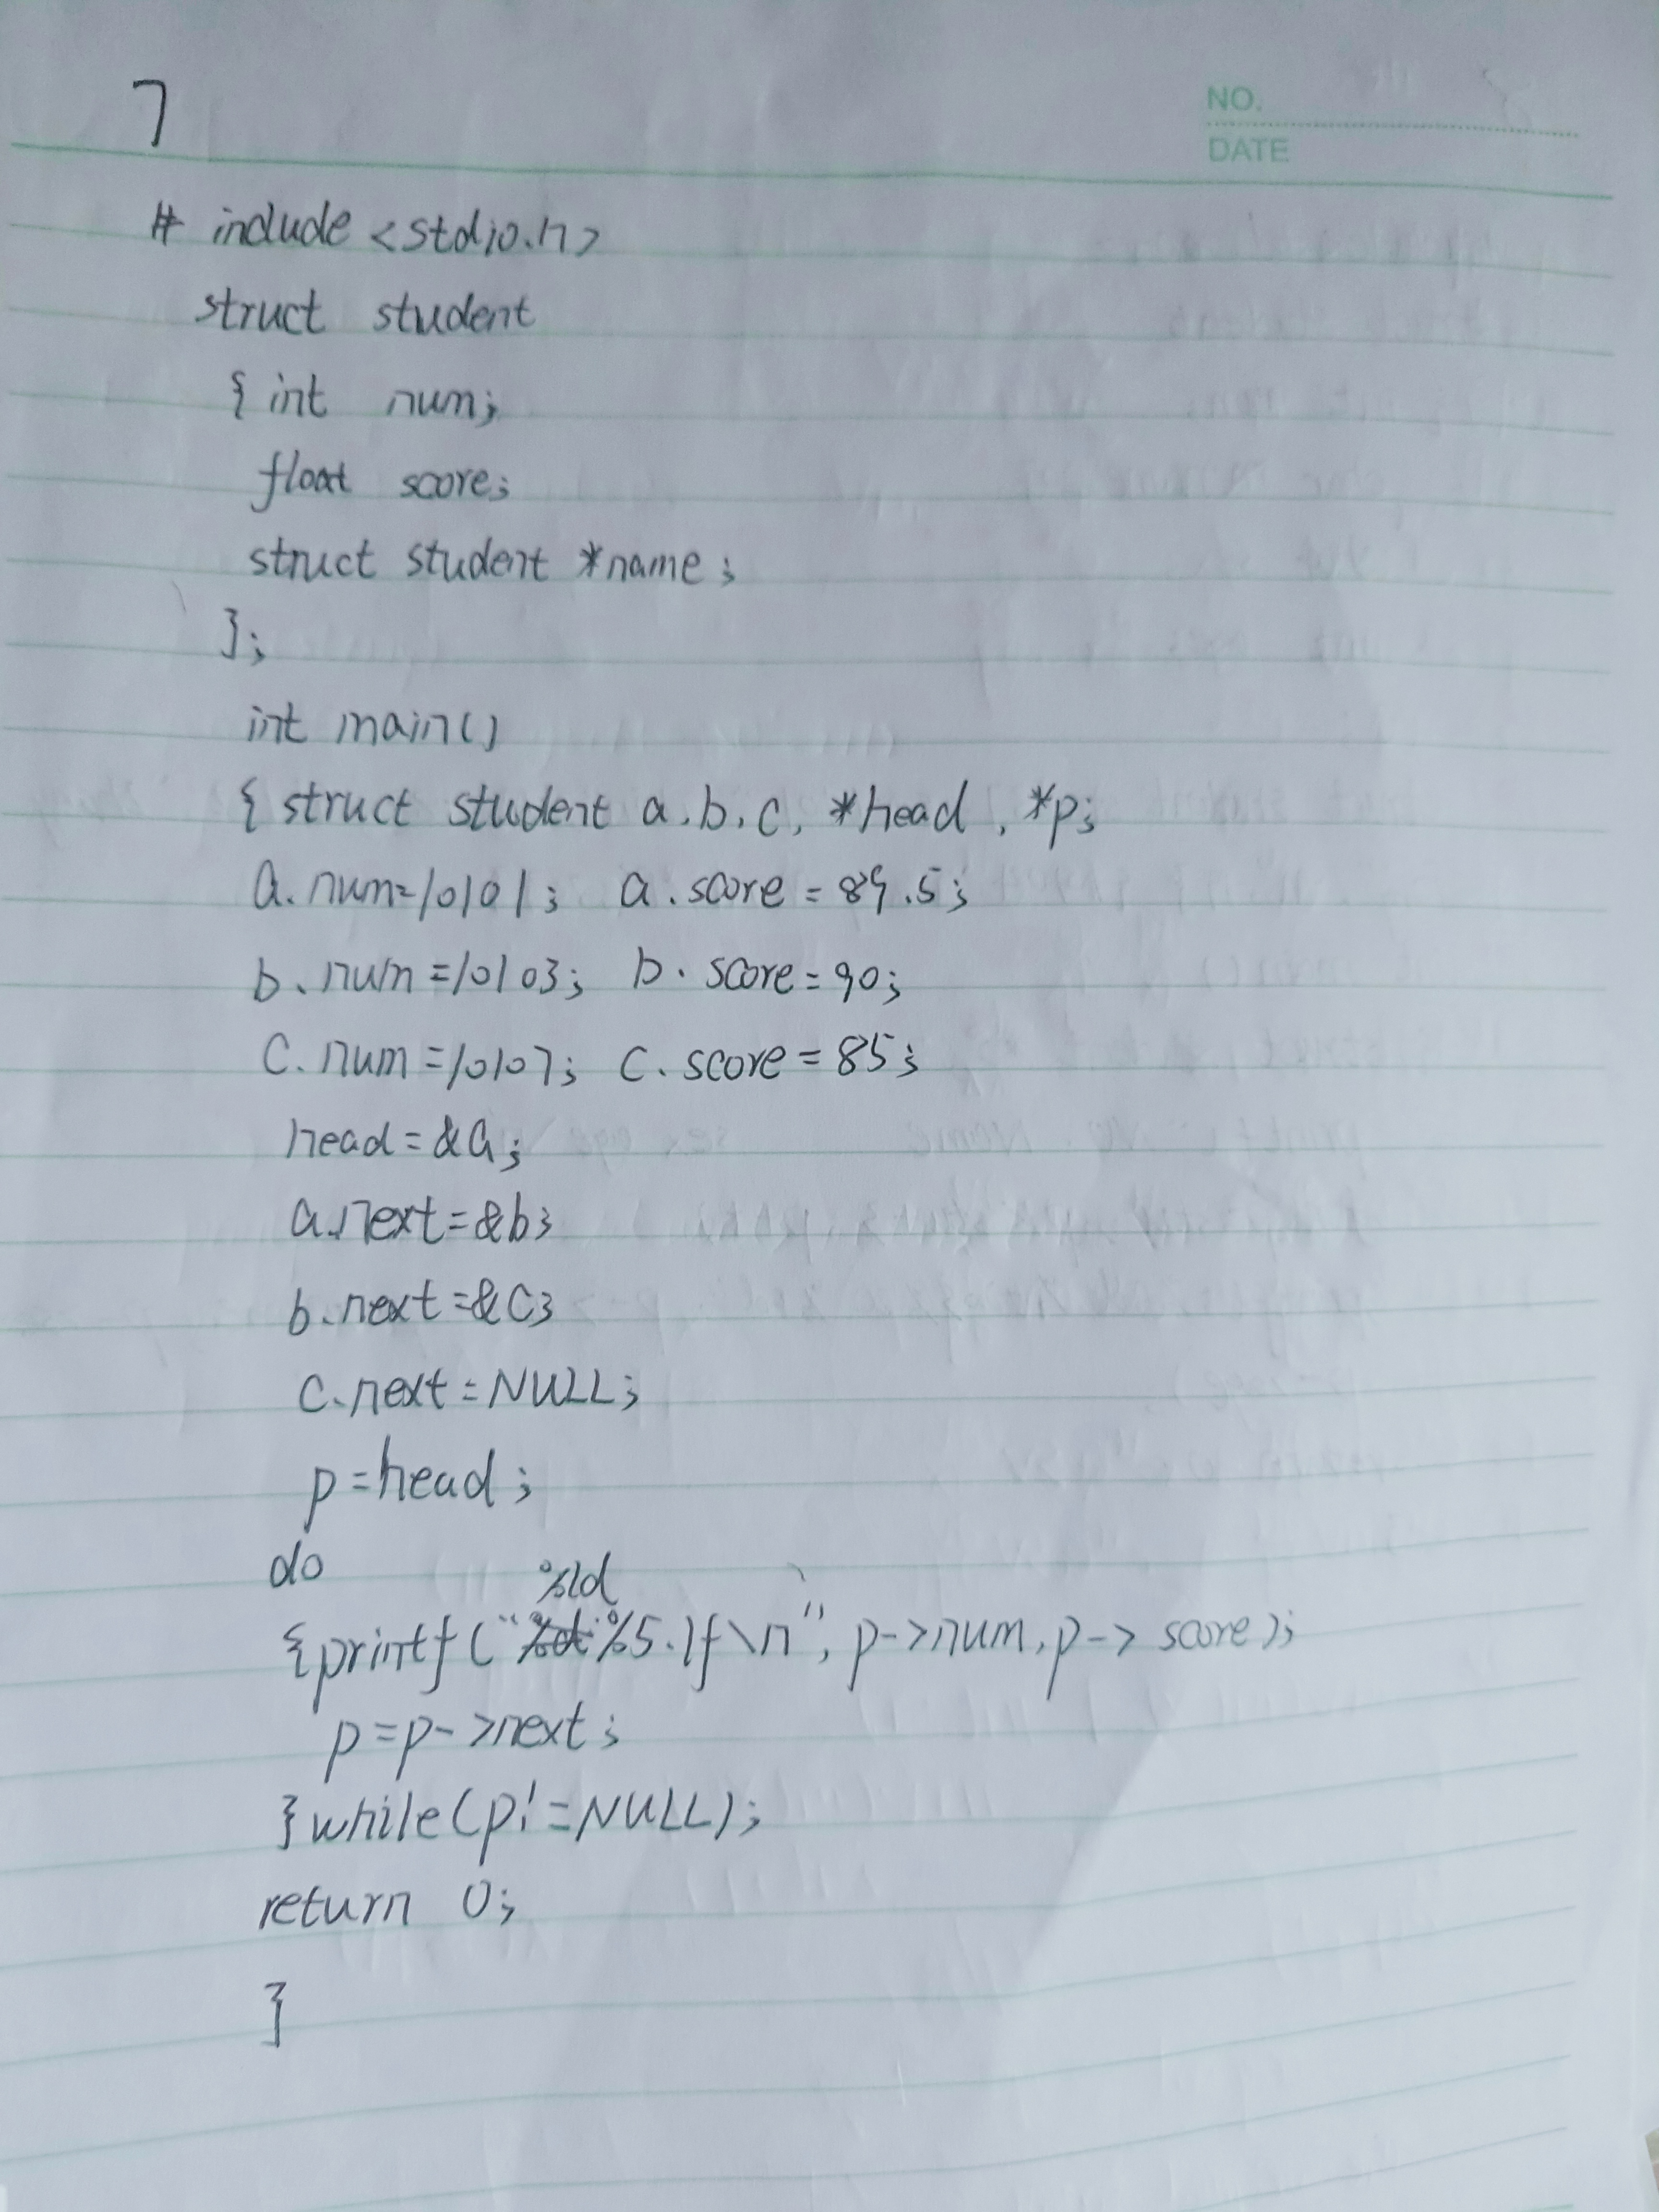 7
NO.
DATE
# include <stdio.h>
struct student
{ int num;
float score;
struct student *name;
};
int main()
{ struct student a,b,c, *head, *p;
a.num=10101; a.score=89.5;
b.num=10103; b.score=90;
c.num=10107; c.score=85;
head=&a;
a.next=&b;
b.next=&c;
c.next=NULL;
p=head;
do
%ld
{printf("%5.1f\n", p->num, p->score);
p=p->next;
}while(p!=NULL);
return 0;
}